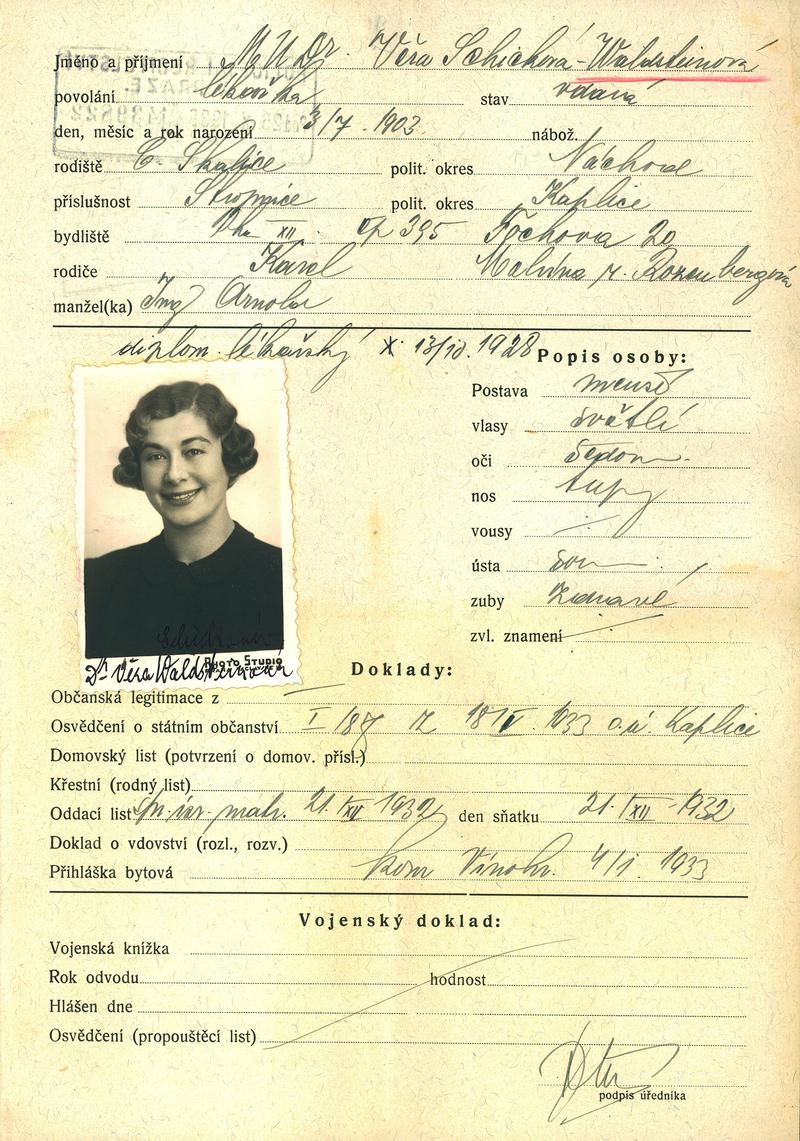 Jméno a příjmení MUDr. Věra Schicková-Waldsteinová
povolání lékařka stav vdaná
den, měsíc a rok narození 3/7. 1903 nábož.
rodiště Č. Skalice polit. okres Náchod
příslušnost Stropnice polit. okres Kaplice
bydliště Pha XII. čp 395 Fochova 20
rodiče Karel Malvina r. Rosenbergová
manžel(ka) Ing Arnold
diplom. lékařský 13/10. 1928
Popis osoby:
Postava menší
vlasy světlé
oči
nos tupý
vousy
ústa
zuby zdravé
zvl. znamení
Dr Věra Waldsteinová
PHOTO STUDIO
Doklady:
Občanská legitimace z
Osvědčení o státním občanství I/187 z 18/V. 1933 o.ú. Kaplice
Domovský list (potvrzení o domov. přísl.)
Křestní (rodný list)
Oddací list 21./XII 1932 den sňatku 21./XII-1932
Doklad o vdovství (rozl., rozv.)
Přihláška bytová kom Vinohr. 4/1. 1933
Vojenský doklad:
Vojenská knížka
Rok odvodu hodnost
Hlášen dne
Osvědčení (propouštěcí list)
podpis úředníka